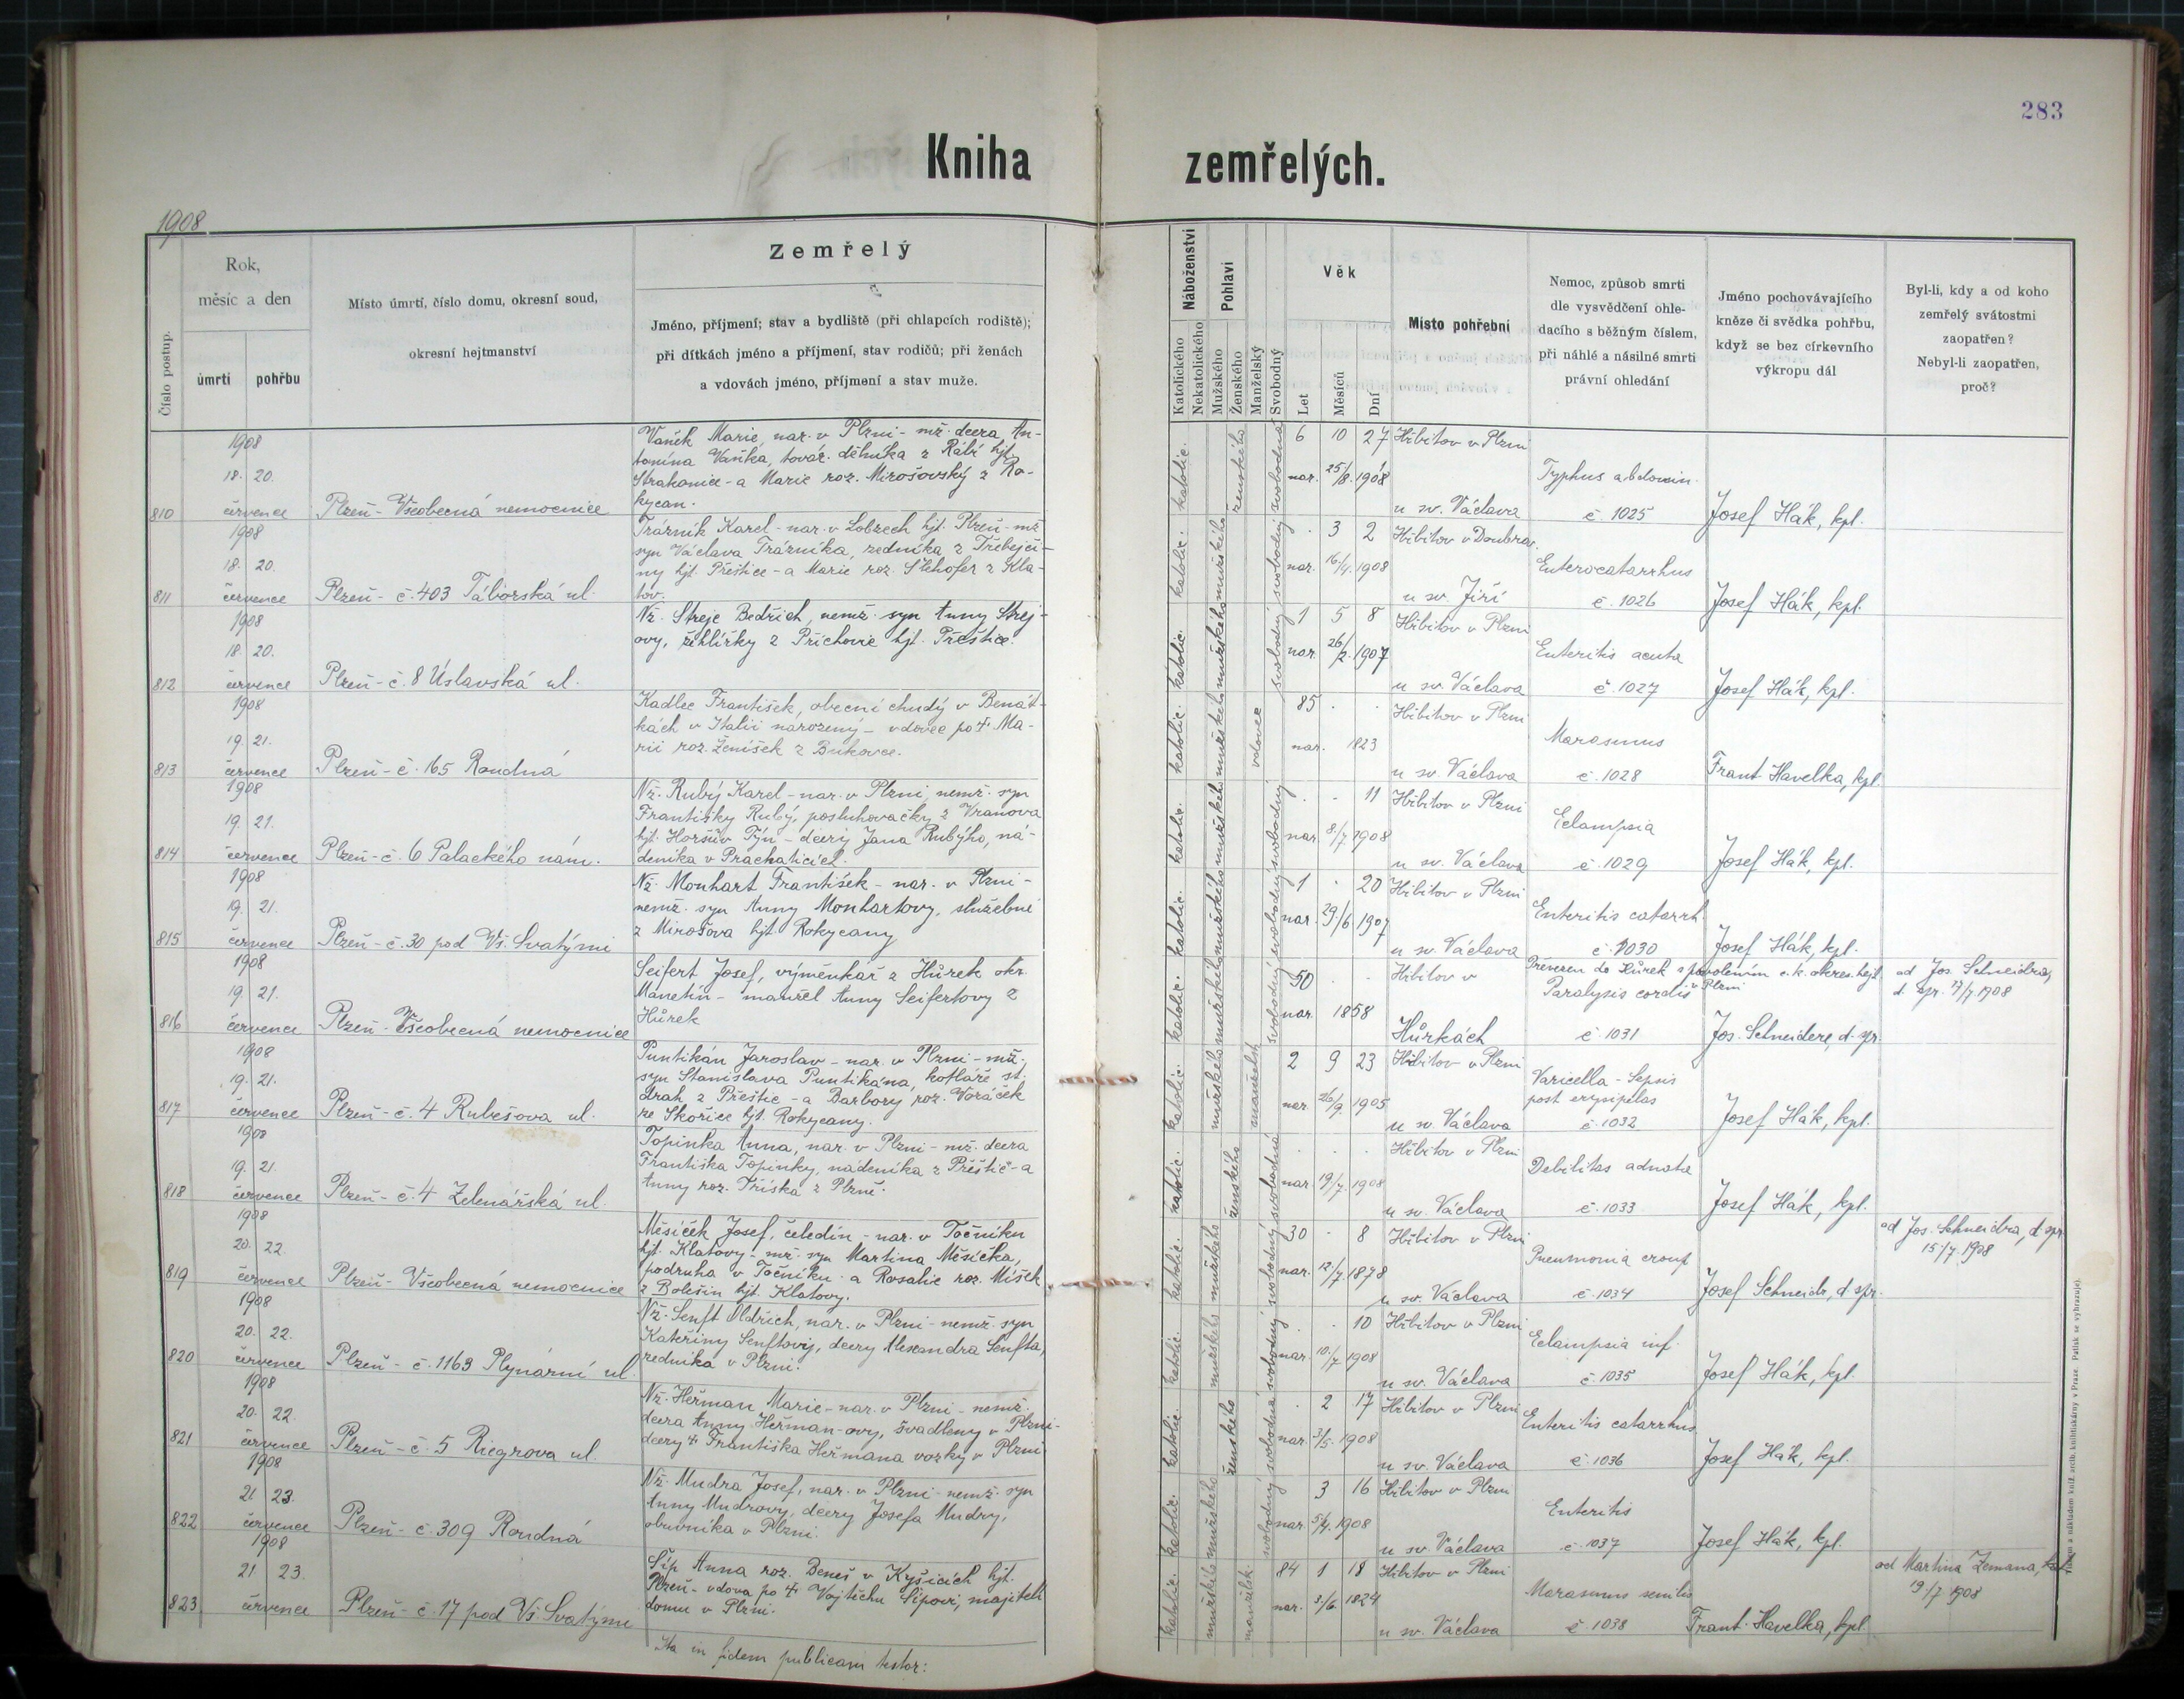 283
Kniha zemřelých.
1908
Číslo postup.
Rok,
měsíc a den
úmrtí
pohřbu
Místo úmrtí, číslo domu, okresní soud,
okresní hejtmanství
Zemřelý
Jméno, příjmení; stav a bydliště (při chlapcích rodiště);
při dítkách jméno a příjmení, stav rodičů; při ženách
a vdovách jméno, příjmení a stav muže.
Náboženství
Katolického
Nekatolického
Pohlaví
Mužského
Ženského
Manželský
Svobodný
Věk
Let
Měsíců
Dní
Místo pohřební
Nemoc, způsob smrti
dle vysvědčení ohle-
dacího s běžným číslem,
při náhlé a násilné smrti
právní ohledání
Jméno pochovávajícího
kněze či svědka pohřbu,
když se bez církevního
výkropu dál
Byl-li, kdy a od koho
zemřelý svátostmi
zaopatřen?
Nebyl-li zaopatřen,
proč?
810
1908
18. 20.
července
Plzeň - Všeobecná nemocnice
Vaněk Marie, nar. v Plzni - mž. dcera An-
tonína Vaňka, továr. dělníka z Rábí hjt.
Strakonice - a Marie roz. Mirošovský z Ro-
kycan.
katolic. ženského svobodná
6 10 27
nar. 25/8. 1908
Hřbitov v Plzni
u sv. Václava
Typhus abdomin.
č 1025
Josef Hák, kpl.
811
1908
18. 20.
července
Plzeň - č. 403 Táborská ul.
Trázník Karel - nar. v Lobzech hjt. Plzeň - mž
syn Václava Trázníka, zedníka z Třebejči-
ny hjt. Přeštice - a Marie roz. Šlehofer z Kla-
tov.
katolic. mužského svobodný
. 3 2
nar. 16/4. 1908
Hřbitov v Doubrav.
u sv. Jiří
Enterocatarrhus
č. 1026
Josef Hák, kpl.
812
1908
18. 20.
července
Plzeň - č. 8 Úslavská ul.
Nž. Streje Bedřich, nemž. syn Anny Strej-
ovy, žehlířky z Příchovic hjt. Přeštice.
katolic. mužského svobodný
1 5 8
nar. 26/2. 1907
Hřbitov v Plzni
u sv. Václava
Enteritis acuta
č. 1027
Josef Hák, kpl.
813
1908
19. 21.
července
Plzeň - č. 165 Roudná
Kadlec František, obecní chudý v Benát-
kách v Italii narozený - vdovec po † Ma-
rii roz. Ženíšek z Bukovce.
katolic. mužského vdovec
85 . .
nar. 1823
Hřbitov v Plzni
u sv. Václava
Marasmus
č. 1028
Frant Havelka, kpl.
814
1908
19. 21.
července
Plzeň - č. 6 Palackého nám.
Nž. Rubý Karel - nar. v Plzni, nemž. syn
Františky Rubý, posluhovačky z Vranova
hjt. Horšův Týn - dcery Jana Rubýho, ná-
deníka v Prachaticích.
katolic. mužského svobodný
. - 11
nar. 8/7. 1908
Hřbitov v Plzni
u sv. Václava
Eclampsia
č. 1029
Josef Hák, kpl.
815
1908
19. 21.
července
Plzeň - č. 30 pod Vš. Svatými
Nž. Monhart František - nar. v Plzni -
nemž. syn Anny Monhartovy, služebné
z Mirošova hjt. Rokycany
katolic. mužského svobodný
1 . 20
nar. 29./6 1907
Hřbitov v Plzni
u sv. Václava
Enteritis catarrh.
č. 1030
Josef Hák, kpl.
816
1908
19. 21.
července
Plzeň - Všeobecná nemocnice
Seifert Josef, výměnkář z Hůrek okr.
Manetín - manžel Anny Seifertovy z
Hůrek
katolic. mužského svobodný
50 . .
nar. 1858
Hřbitov v
Hůrkách
Převezen do Hůrek s povolením c. k. okres. hejt.
v Plzni
Paralysis cordis
č 1031
Jos. Schneidere, d. spr.
od Jos. Schneidra,
d. spr. 17/7 1908
817
1908
19. 21.
července
Plzeň - č. 4 Rubešova ul.
Puntikán Jaroslav - nar. v Plzni - mž.
syn Stanislava Puntikána, kotláře st.
drah z Přeštic - a Barbory roz. Voráček
ze Skořice hjt. Rokycany.
katolic. mužského manželsk
2 9 23
nar. 26/9. 1905
Hřbitov v Plzni
u sv. Václava
Varicella - Sepsis
post erysipelas
č. 1032
Josef Hák, kpl.
818
1908
19. 21.
července
Plzeň - č. 4 Zelenářská ul.
Topinka Anna, nar. v Plzni - mž. dcera
Františka Topinky, nádeníka z Přeštic - a
Anny roz. Tříska z Plzně.
katolic. ženského svobodná
. . .
nar. 19/7. 1908
Hřbitov v Plzni
u sv. Václava
Debilitas adnata
č. 1033
Josef Hák, kpl.
819
1908
20. 22.
července
Plzeň - Všeobecná nemocnice
Měsíček Josef, čeledín - nar. v Točníku
hjt. Klatovy - mž. syn Martina Měsíčka,
podruha v Točníku - a Rosalie roz. Míšek
z Bolešin hjt. Klatovy.
katolic. mužského svobodný
30 - 8
nar. 12/7. 1878
Hřbitov v Plzni
u sv. Václava
Pneumonia croup
č. 1034
Josef Schneidr, d. spr.
od Jos. Schneidra, d. spr
15./7. 1908
820
1908
20. 22.
července
Plzeň - č. 1163 Plynární ul.
Nž. Senft Oldřich, nar. v Plzni - nemž. syn
Kateřiny Senftovy, dcery Alexandra Senfta,
zedníka v Plzni.
katolic. mužského svobodný
. . 10
nar. 10./7 1908
Hřbitov v Plzni
u sv. Václava
Eclampsia inf.
č. 1035
Josef Hák, kpl.
821
1908
20. 22.
července
Plzeň - č. 5 Riegrova ul.
Nž. Heřman Marie - nar. v Plzni - nemž.
dcera Anny Heřman-ovy, švadleny v Plzni -
dcery † Františka Heřmana vozky v Plzni
katolic. ženského svobodná
. 2 17
nar. 3/5. 1908
Hřbitov v Plzni
u sv. Václava
Enteritis catarrhus
č. 1036
Josef Hák, kpl.
822
1908
21 23.
července
Plzeň - č. 309 Roudná
Nž. Mudra Josef, nar. v Plzni - nemž. syn
Anny Mudrovy, dcery Josefa Mudry,
obuvníka v Plzni.
katolic. mužského svobodný
3 16
nar. 5/4. 1908
Hřbitov v Plzni
u sv. Václava
Enteritis
č 1037
Josef Hák, kpl.
823
1908
21 23.
července
Plzeň - č. 17 pod Vš. Svatými
Šíp Anna roz. Beneš v Kyšicích hjt.
Plzeň - vdova po † Vojtěchu Šípovi, majiteli
domu v Plzni.
katolic. mužského manželsk.
84 1 18
nar. 3/6. 1824
Hřbitov v Plzni
u sv. Václava
Marasmus senilis
č. 1038
Frant. Havelka, kpl
od Martina Zemana,
19/7 1908
Ita in fidem publicam testor:
Tiskem a nákladem kníž. arcib. knihtiskárny v Praze. Patisk se vyhrazuje.